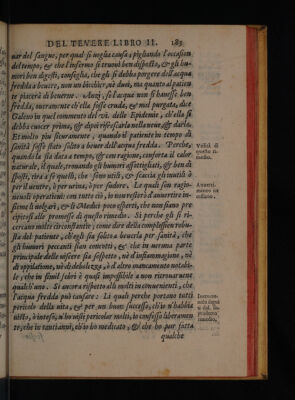 DEL TEVERE LIBRO II. 183
uar del sangue, per qual si uoglia causa; pigliando l'occasion
del tempo, & che l'infermo si truoui ben disposto, & gli hu-
mori ben digesti, consiglia, che gli si debba porgere dell'acqua
fredda a beuere, non un bicchier, nè duoi, ma quanto al patien
te piacerà di beuerne. Anzi, se l'acqua non si hauesse ben
fredda, ueramente ch'ella fosse cruda, & mal purgata, dice
Galeno in quel commento del vi. delle Epidemie, ch'ella si
debba cuocer prima, & dipoi rifrescarla nella neue, & darla.
Et molto piu sicuramente, quando il patiente in tempo di
sanità fosse stato solito a beuer dell'acqua fredda. Perche,
quando la sia data a tempo, & con ragione, conforta il calor
naturale, il quale, trouando gli humori assottigliati, & ben di
sposti, tira a se quelli, che sono utili, & scaccia gli inutili ò
per il uentre, ò per urina, ò per sudore. Le quali son ragio-
neuoli operationi: con tutto ciò, io non resterò d'auuertire in-
sieme li uulgari, & li Medici poco esperti, che non siano pre
cipitosi alle promesse di questo rimedio. Si perche gli si ri-
cercano molte circonstantie; come dire della complession robu-
stia del patiente, ch'egli sia solito a beuerla per sanità, che
gli humori peccanti sian concotti, & che in nessuna parte
principale delle uiscere sia sospetto, nè d'infiammagione, nè
di oppilatione, nè di debolezza, ò d'altro mancamento notabi-
le; che in simil febri è quasi impossibile a non ritrouaruene
qualch'uno. Si ancora rispetto alli molti inconuenienti, che
l'acqua fredda può causare: Li quali perche portano tutti
pericolo della uita, & per un buon successo, ch'io n'habbia
uisto, ò inteso, n'ho uisti pericolar molti, io confesso liberamen
te, che in tanti anni, ch'io ho medicato, & che ho pur fatta
qualche
Vtilità di
questo ri-
medio.
Auuerti-
mento ne
cessario.
Inconue-